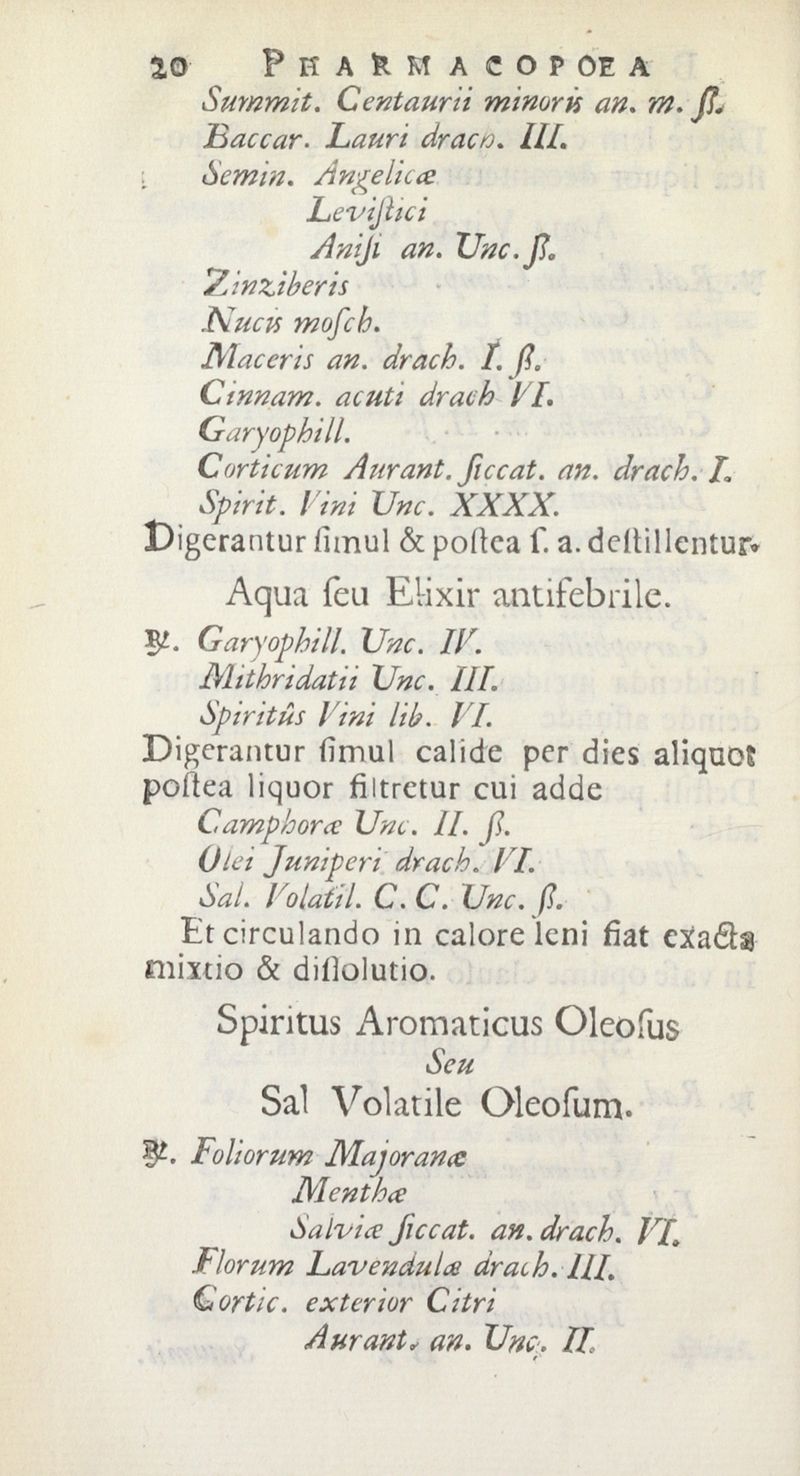 20 PHARMACOPOEA
Summit. Centaurii minoris an. m. ß.
Baccar. Lauri drach. III.
Semin. Angelicæ
Leviſtici
Aniſi an. Unc. ß.
Zinziberis
Nucis moſch.
Maceris an. drach. I. ß.
Cinnam. acuti drach VI.
Garyophill.
Corticum Aurant. ſiccat. an. drach. I.
Spirit. Vini Unc. XXXX.
Digerantur ſimul & poſtea ſ. a. deſtillentur.
Aqua ſeu Elixir antifebrile.
℞. Garyophill. Unc. IV.
Mithridatii Unc. III.
Spiritûs Vini lib. VI.
Digerantur ſimul calide per dies aliquot
poſtea liquor filtretur cui adde
Camphoræ Unc. II. ß.
Olei Juniperi drach. VI.
Sal. Volatil. C. C. Unc. ß.
Et circulando in calore leni fiat exacta
mixtio & diſſolutio.
Spiritus Aromaticus Oleoſus
Seu
Sal Volatile Oleoſum.
℞. Foliorum Majoranæ
Menthæ
Salviæ ſiccat. an. drach. VI.
Florum Lavendulæ drach. III.
Cortic. exterior Citri
Aurant. an. Unc. II.